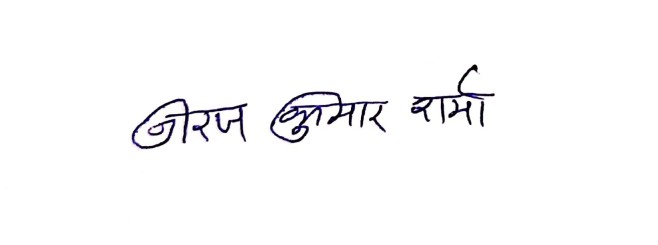 नीरज कुमार शर्मा